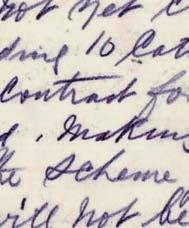 not yet c
ding 10 Cat
Contract fo
d. Making
the scheme
will not be